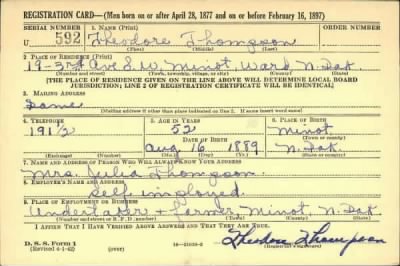 REGISTRATION CARD—(Men born on or after April 28, 1877 and on or before February 16, 1897)
SERIAL NUMBER 1. NAME (Print) ORDER NUMBER
U 592 Theodore Thompson
(First) (Middle) (Last)
2. PLACE OF RESIDENCE (Print)
19-3rd Ave S.W. Minot, Ward N. Dak.
(Number and street) (Town, township, village, or city) (County) (State)
[THE PLACE OF RESIDENCE GIVEN ON THE LINE ABOVE WILL DETERMINE LOCAL BOARD
JURISDICTION; LINE 2 OF REGISTRATION CERTIFICATE WILL BE IDENTICAL]
3. MAILING ADDRESS
Same
[Mailing address if other than place indicated on line 2. If same insert word same]
4. TELEPHONE 5. AGE IN YEARS 6. PLACE OF BIRTH
191/2 52 Minot
DATE OF BIRTH (Town or county)
Aug 16 1889 N. Dak.
(Exchange) (Number) (Mo.) (Day) (Yr.) (State or country)
7. NAME AND ADDRESS OF PERSON WHO WILL ALWAYS KNOW YOUR ADDRESS
Mrs. Julia Thompson
8. EMPLOYER'S NAME AND ADDRESS
Self imployed
9. PLACE OF EMPLOYMENT OR BUSINESS
Undertaker + farmer, Minot, N. Dak.
(Number and street or R. F. D. number) (Town) (County) (State)
I AFFIRM THAT I HAVE VERIFIED ABOVE ANSWERS AND THAT THEY ARE TRUE.
D. S. S. Form 1
(Revised 4-1-42) (over) Theodore Thompson
(Registrant's signature)